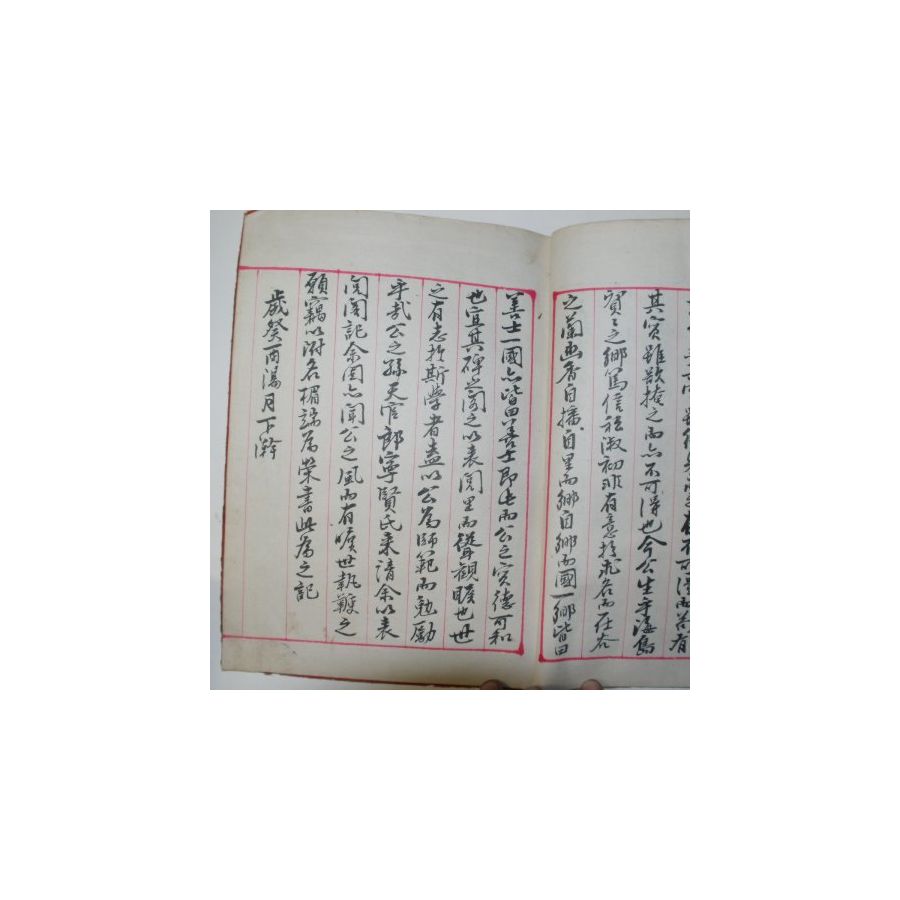 其實雖欲掩之而亦不可得也今公生于海島
寶之鄕篤信私淑初非有意於求名而在谷
之蘭幽香自播自里而鄕自鄕而國一鄕皆曰
善士一國亦皆曰善士即此而公之實德可知
也宜其碑之閣之以表閭里而聳觀瞻也世
之有志於斯學者盍以公爲師範而勉勵
乎哉公之孫天官郞寧賢氏來請余以表
閭閣記余固亦聞公之風而有曠世執鞭之
願竊以附名楣端爲榮書此爲之記
歲癸酉陽月下澣